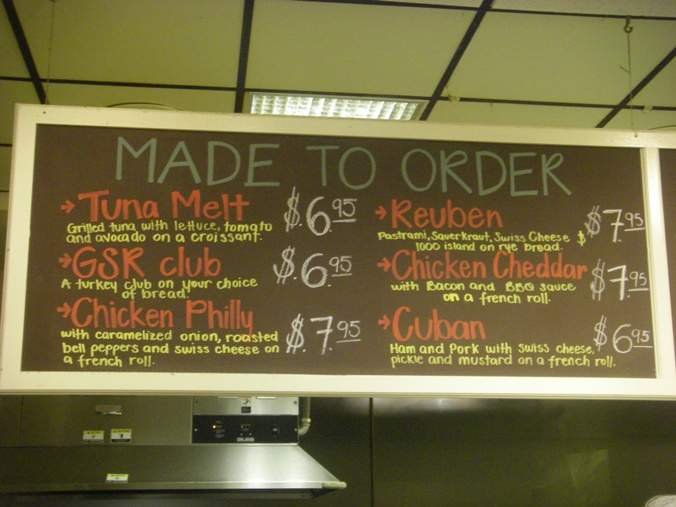 MADE TO ORDER
→ Tuna Melt $6.95
Grilled tuna, with lettuce, tomato
and avocado on a croissant.
→ GSR club $.6.95
A turkey club on your choice
of bread.
→ Chicken Philly $.7.95
with caramelized onion, roasted
bell peppers and swiss cheese on
a french roll.
→ Reuben $7.95
Pastrami, Sauerkraut, Swiss Cheese $
1000 island on rye bread.
→ Chicken Cheddar $7.95
with Bacon and BBQ sauce
on a french roll.
→ Cuban $6.95
Ham and Pork with swiss cheese,
pickle and mustard on a french roll.